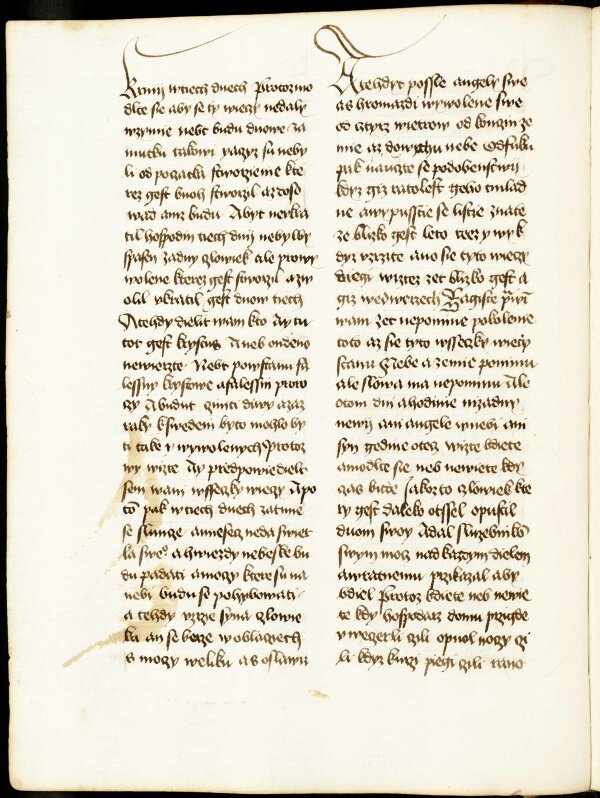 krmij wtiech dnech Protozmo
dlte sie aby se ty wieczy nedaly
wzymie nebt budu dnowe za
mutku takowi yazyz su neby
li od poczatka stworzenie kte
rez gest buoh stworzil az dosa
wad aniz budu Abyt nezkra
til hospodin tiech dnij nebyl by
spasen zadny czlowiek ale prowy
wolene kterez gest stworzil a zw
olil vkratil gest dnow tiech
Atehdy dieli t wam kto Ay tu
tot gest krystus Aneb ondeno
newierzte Nebt powstanu fa
lessny krystowe a falessni proro
czy Abudut cziniti diwy azaz
raky kswedeni byto mozlo by
ti take y wywolenych Protoz
wy wizte Ay przedpowiediel
sem wam wsseczky wieczy Apo
tom pak wtiech dnech zatmie
se slunce amiesiecz neda swiet
la sweho ahwiezdy nebeske bu
du padati amoczy ktere su na
nebi budu se pohybowati
a tehdy vzrzie syna czlowie
ka an se berze woblaczech
s moczy weliku a s oslawu
Atehdyt possle angely swe
as hromazdi wywolene swe
od cztyrz wietrow od konczin ze
mie az dowrchu nebe Odfiku
pak nauczte se podobenstwij
kdyz giz ratolest geho mlad
ne awypusstie se listie znate
ze blizko gest leto teez y wy k
dyz vzrzite ano sie tyto wieczy
diegi wiezte zet blizko gest a
giz wedwerzech Zagiste prawi
wam zet nepomine pokolenie
toto az sie tyto wsseczky wieczy
stanu Nebe a zemie pominu
ale slowa ma nepominu Ale
otom dni ahodinie nizadny
newij ani angele wnebi ani
syn gedine otecz wizte bdiete
amodlte sie neb newiete kdy
czas bude Jakozto czlowiek kte
ry gest daleko otssel opustil
duom swoy Adal sluzebnikom
swym mocz nad kazdym dielem
awratnemu przikazal aby
bdiel Protoz bdiete neb newie
te kdy hospodarz domu przigde
v weczerli czili opuol noczy czi
li kdyz kurzi piegi czili rano